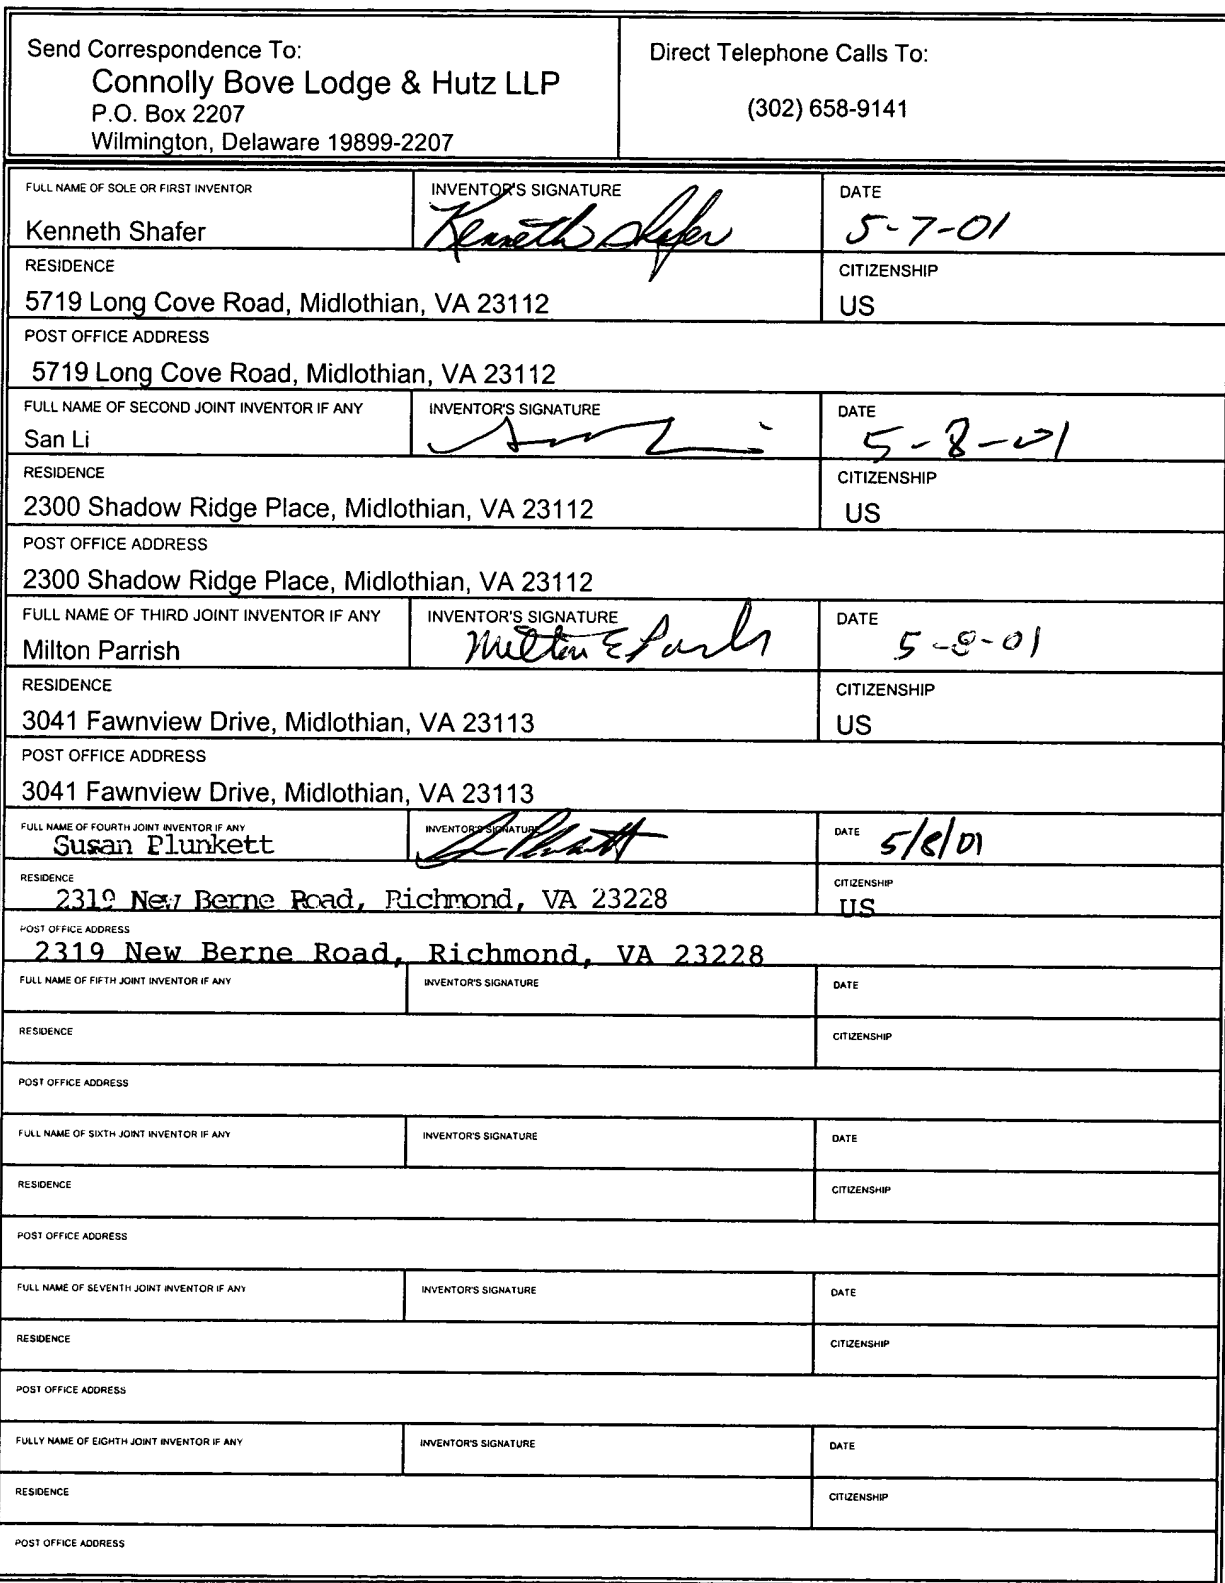 Send Correspondence To:
Connolly Bove Lodge & Hutz LLP
P.O. Box 2207
Wilmington, Delaware 19899-2207
Direct Telephone Calls To:
(302) 658-9141
FULL NAME OF SOLE OR FIRST INVENTOR
Kenneth Shafer
INVENTOR'S SIGNATURE
Kenneth Shafer
DATE
5-7-01
RESIDENCE
5719 Long Cove Road, Midlothian, VA 23112
CITIZENSHIP
US
POST OFFICE ADDRESS
5719 Long Cove Road, Midlothian, VA 23112
FULL NAME OF SECOND JOINT INVENTOR IF ANY
San Li
INVENTOR'S SIGNATURE
San Li
DATE
5-8-01
RESIDENCE
2300 Shadow Ridge Place, Midlothian, VA 23112
CITIZENSHIP
US
POST OFFICE ADDRESS
2300 Shadow Ridge Place, Midlothian, VA 23112
FULL NAME OF THIRD JOINT INVENTOR IF ANY
Milton Parrish
INVENTOR'S SIGNATURE
Milton E Parrish
DATE
5-8-01
RESIDENCE
3041 Fawnview Drive, Midlothian, VA 23113
CITIZENSHIP
US
POST OFFICE ADDRESS
3041 Fawnview Drive, Midlothian, VA 23113
FULL NAME OF FOURTH JOINT INVENTOR IF ANY
Susan Plunkett
INVENTOR'S SIGNATURE
S Plunkett
DATE
5/8/01
RESIDENCE
2319 New Berne Road, Richmond, VA 23228
CITIZENSHIP
US
POST OFFICE ADDRESS
2319 New Berne Road, Richmond, VA 23228
FULL NAME OF FIFTH JOINT INVENTOR IF ANY
INVENTOR'S SIGNATURE
DATE
RESIDENCE
CITIZENSHIP
POST OFFICE ADDRESS
FULL NAME OF SIXTH JOINT INVENTOR IF ANY
INVENTOR'S SIGNATURE
DATE
RESIDENCE
CITIZENSHIP
POST OFFICE ADDRESS
FULL NAME OF SEVENTH JOINT INVENTOR IF ANY
INVENTOR'S SIGNATURE
DATE
RESIDENCE
CITIZENSHIP
POST OFFICE ADDRESS
FULLY NAME OF EIGHTH JOINT INVENTOR IF ANY
INVENTOR'S SIGNATURE
DATE
RESIDENCE
CITIZENSHIP
POST OFFICE ADDRESS